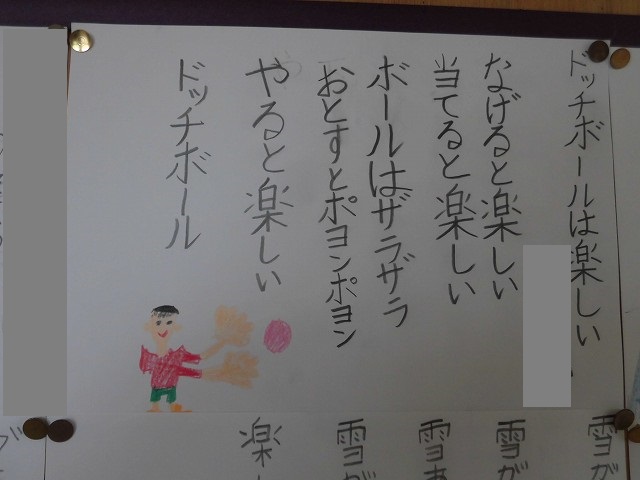 ドッチボールは楽しい
なげると楽しい
当てると楽しい
ボールはザラザラ
おとすとポヨンポヨン
やると楽しい
ドッチボール
雪が
雪が
雪あ
雪が
楽し